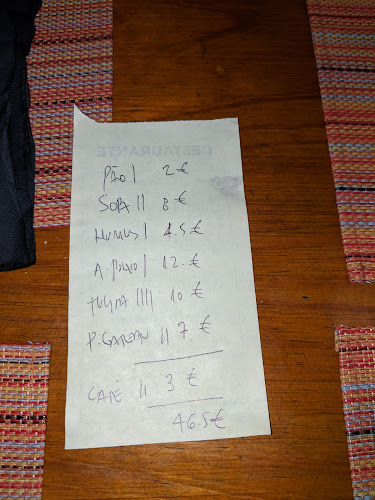 RESTAURANTE
PÃO | 2 €
SOPA || 8 €
HUMUS | 4.5 €
A. POLVO | 12. €
|||| 10 €
P. GARDAN || 7 €
CAFÉ || 3 €
46.5 €